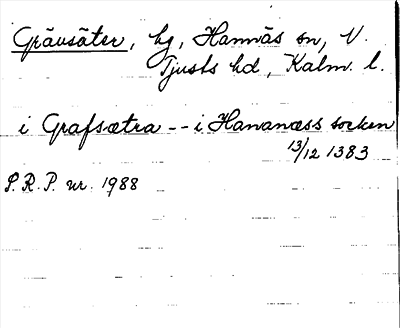 Grävsäter, hg, Hannäs sn, N.
Tjusts hd, Kalm. l.
i Grafsætra -- i Hananæss socken
13/12 1383
S.R.P. nr. 1988